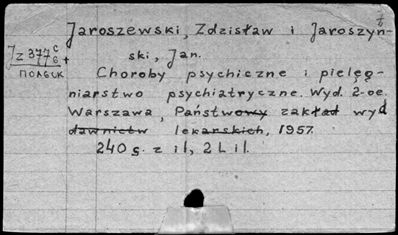 Jaroszewski, Zdzisław i Jaroszyń-
ski, Jan.
Choroby psychiczne i pielęg-
niarstwo psychiatryczne. Wyd. 2-oe.
Warszawa, Państwowy zakład wyd
dawnictw lekarskich, 1957.
240 s. z il, 2 L il.
Jz 377 c
778
ПОЛЬСК